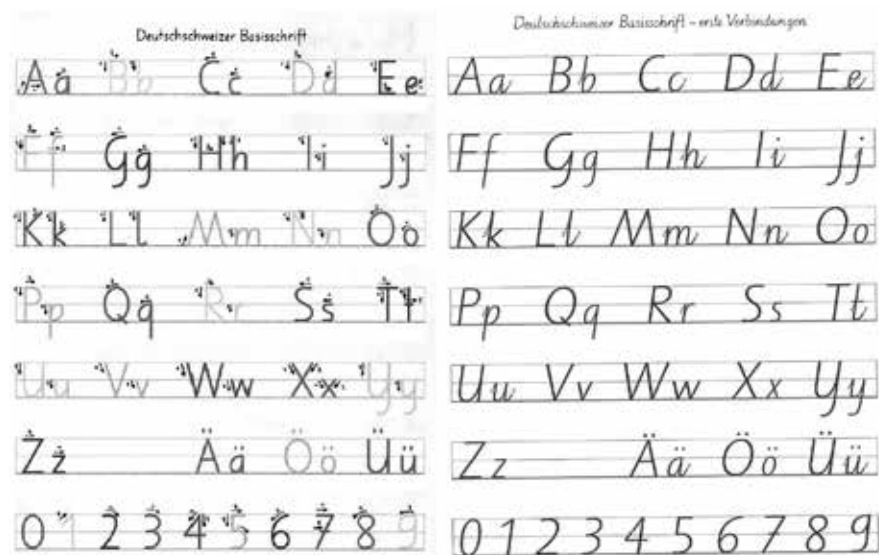 Deutschschweizer Basisschrift
Aa Bb Cc Dd Ee
Ff Gg Hh Ii Jj
Kk Ll Mm Nn Oo
Pp Qq Rr Ss Tt
Uu Vv Ww Xx Yy
Zz Ää Öö Üü
0 1 2 3 4 5 6 7 8 9
Deutschschweizer Basisschrift – erste Verbindungen
Aa Bb Cc Dd Ee
Ff Gg Hh Ii Jj
Kk Ll Mm Nn Oo
Pp Qq Rr Ss Tt
Uu Vv Ww Xx Yy
Zz Ää Öö Üü
0 1 2 3 4 5 6 7 8 9